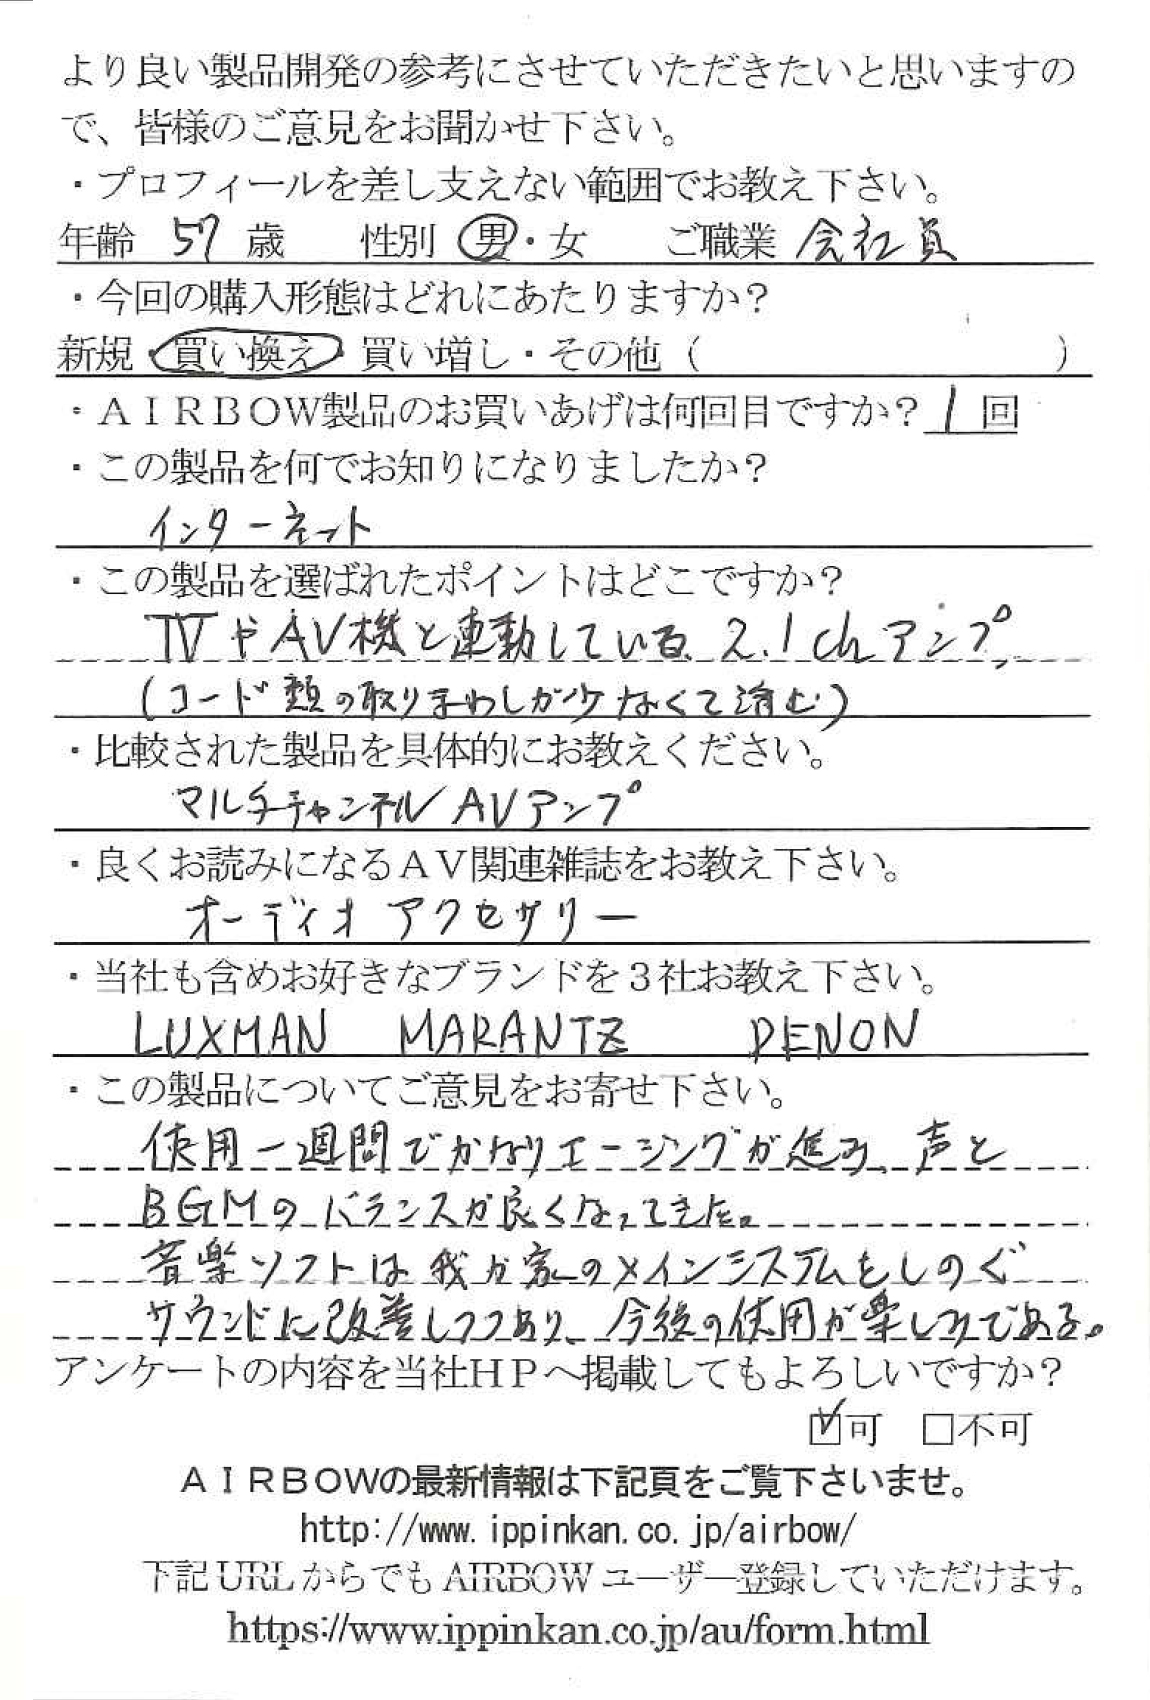 より良い製品開発の参考にさせていただきたいと思いますの
で、皆様のご意見をお聞かせ下さい。
・プロフィールを差し支えない範囲でお教え下さい。
年齢 57 歳 性別 男・女 ご職業 会社員
・今回の購入形態はどれにあたりますか？
新規・買い換え・買い増し・その他（ ）
・ＡＩＲＢＯＷ製品のお買いあげは何回目ですか？ 1 回
・この製品を何でお知りになりましたか？
インターネット
・この製品を選ばれたポイントはどこですか？
TVやAV機と連動している、2.1chアンプ、
(コード類の取りまわしが少なくて済む)
・比較された製品を具体的にお教えください。
マルチチャンネルAVアンプ
・良くお読みになるＡＶ関連雑誌をお教え下さい。
オーディオ アクセサリー
・当社も含めお好きなブランドを３社お教え下さい。
LUXMAN MARANTZ DENON
・この製品についてご意見をお寄せ下さい。
使用一週間でかなりエージングが進み、声と
BGMのバランスが良くなってきた。
音楽ソフトは我が家のメインシステムをしのぐ
サウンドに改善しつつあり、今後の使用が楽しみである。
アンケートの内容を当社ＨＰへ掲載してもよろしいですか？
☑可 □不可
ＡＩＲＢＯＷの最新情報は下記頁をご覧下さいませ。
http://www.ippinkan.co.jp/airbow/
下記 URL からでも AIRBOW ユーザー登録していただけます。
https://www.ippinkan.co.jp/au/form.html